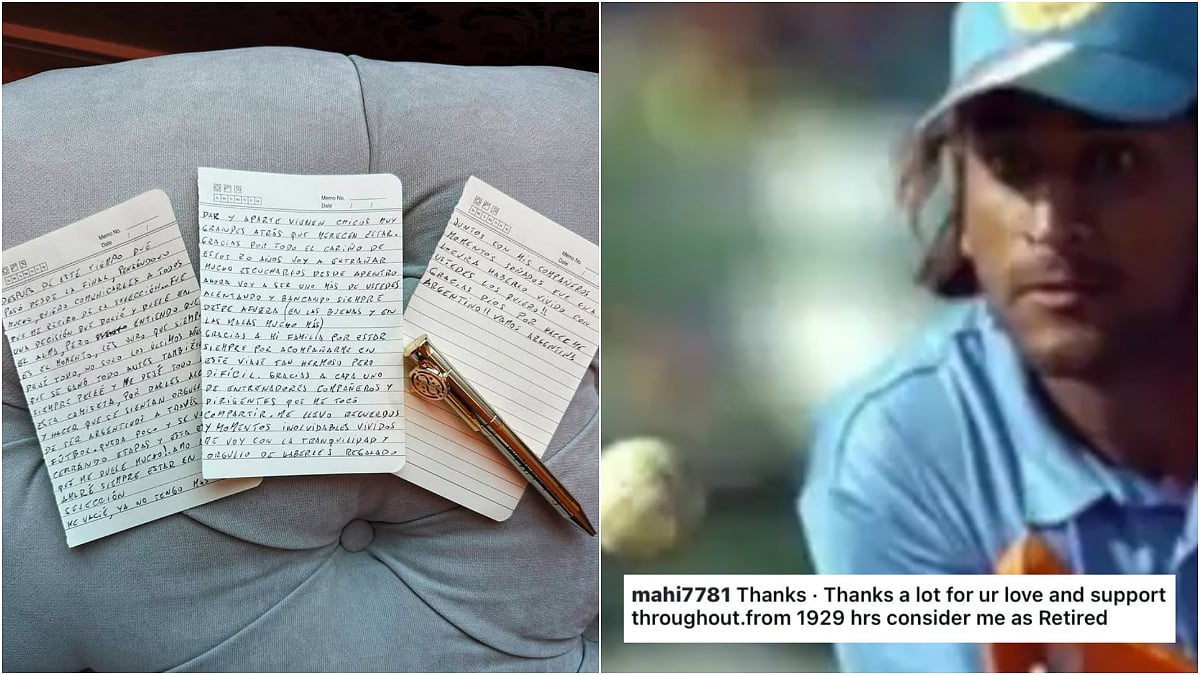 Memo No.
Date / /
DESPUES DE ESTE TIEMPO QUE
PASÓ DESDE LA FINAL, PENSÁNDOLO
MUCHO, QUIERO COMUNICARLES A TODOS
QUE ME RETIRO DE LA SELECCIÓN. FUE
UNA DECISIÓN QUE DOLIÓ Y DUELE EN
EL ALMA, PERO ENTIENDO QUE
ES EL MOMENTO, LES JURO QUE SIEMP
DEJÉ TODO, NO SOLO LOS ULTIMOS AÑ
QUE SE GANÓ TODO ANTES TAMBIÉN
SIEMPRE PELEÉ Y ME DEJÉ TODO
ESTA CAMISETA, POR DARLES ALE
Y HACER QUE SE SIENTAN ORGUL
DE SER ARGENTINOS A TRAVÉS
FÚTBOL. QUEDA POCO Y SE V
CERRANDO ETAPAS Y ESTA
QUE ME DUELE MUCHO. AMO
AMARÉ SIEMPRE ESTAR EN
SELECCIÓN
ME VACIÉ, YA NO TENGO MÁS
Memo No.
Date / /
DAR Y APARTE VIENEN CHICOS MUY
GRANDES ATRÁS QUE MERECEN ESTAR.
GRACIAS POR TODO EL CARIÑO DE
ESTOS 20 AÑOS VOY A EXTRAÑAR
MUCHO ESCUCHARLOS DESDE ADENTRO
AHORA VOY A SER UNO MÁS DE USTEDES
ALENTANDO Y BANCANDO SIEMPRE
DESDE AFUERA (EN LAS BUENAS Y EN
LAS MALAS MUCHO MÁS)
GRACIAS A MI FAMILIA POR ESTAR
SIEMPRE POR ACOMPAÑARME EN
ESTE VIAJE TAN HERMOSO PERO
DIFÍCIL. GRACIAS A CADA UNO
DE ENTRENADORES COMPAÑEROS Y
DIRIGENTES QUE ME TOCÓ
COMPARTIR. ME LLEVO RECUERDOS
Y MOMENTOS INOLVIDABLES VIVIDOS
ME VOY CON LA TRANQUILIDAD Y
ORGULLO DE HABERLES REGALADO
Memo No.
Date
JUNTOS CON MIS COMPAÑEROS
MOMENTOS SOÑADOS FUE UNA
LOCURA HABERLO VIVIDO CON
USTEDES LOS QUIERO!!
GRACIAS DIOS POR HACERME
ARGENTINO!! VAMOS
ARGENTINA
mahi7781 Thanks · Thanks a lot for ur love and support
throughout.from 1929 hrs consider me as Retired